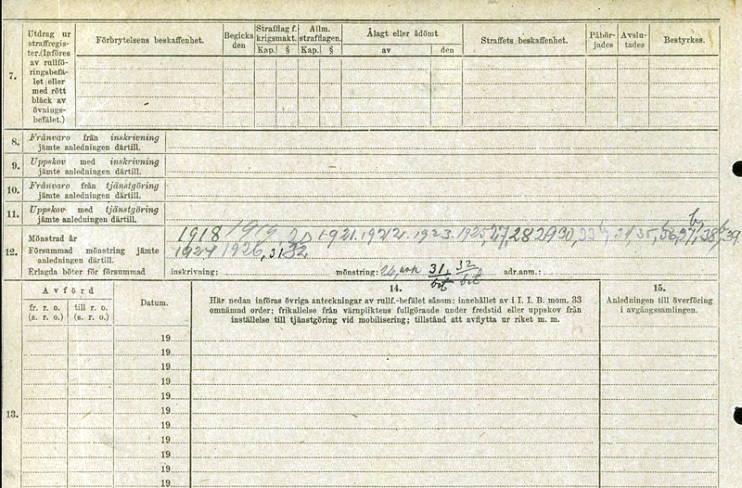 7.
Utdrag ur
straffregis-
ter.(Införes
av rullfö-
ringsbefä-
let eller
med rött
bläck av
övnings-
befälet.)
Förbrytelsens beskaffenhet.
Begicks
den
Strafflag f.
krigsmakt.
Kap. §
Allm.
strafflagen.
Kap. §
Ålagt eller ådömt
av den
Straffets beskaffenhet.
Påbör-
jades
Avslu-
tades
Bestyrkes.
8. Frånvaro från inskrivning
jämte anledningen därtill.
9. Uppskov med inskrivning
jämte anledningen därtill.
10. Frånvaro från tjänstgöring
jämte anledningen därtill.
11. Uppskov med tjänstgöring
jämte anledningen därtill.
12.
Mönstrad år 1918 1919 20 1921. 1922. 1923. 1925, 27, 28 29 30, 33, 34, 35, 36, 37, 38, 39
Försummad mönstring jämte
anledningen därtill. 1924 1926, 31. 32
Erlagda böter för försummad inskrivning: mönstring: 26, och 31. 32 adr.anm.:
13.
Avförd
fr. r. o.
(s. r. o.)
till r. o.
(s. r. o.)
Datum.
14.
Här nedan införas övriga anteckningar av rullf.-befälet såsom: innehållet av i I. I. B. mom. 33
omnämnd order; frikallelse från värnpliktens fullgörande under fredstid eller uppskov från
inställelse till tjänstgöring vid mobilisering; tillstånd att avflytta ur riket m. m.
15.
Anledningen till överföring
i avgångssamlingen.
19
19
19
19
19
19
19
19
19
19
19